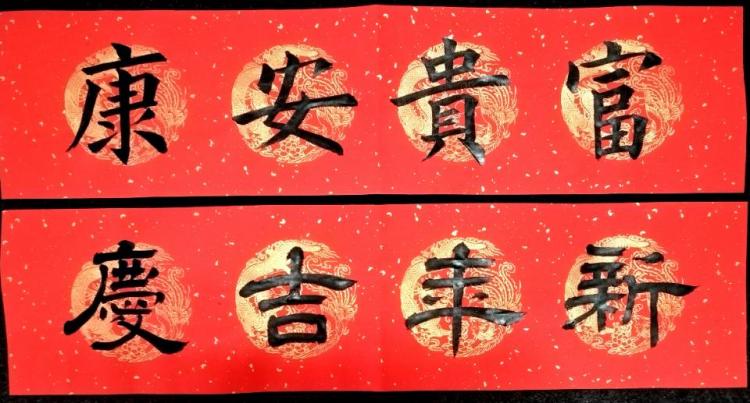 富貴安康
新年吉慶